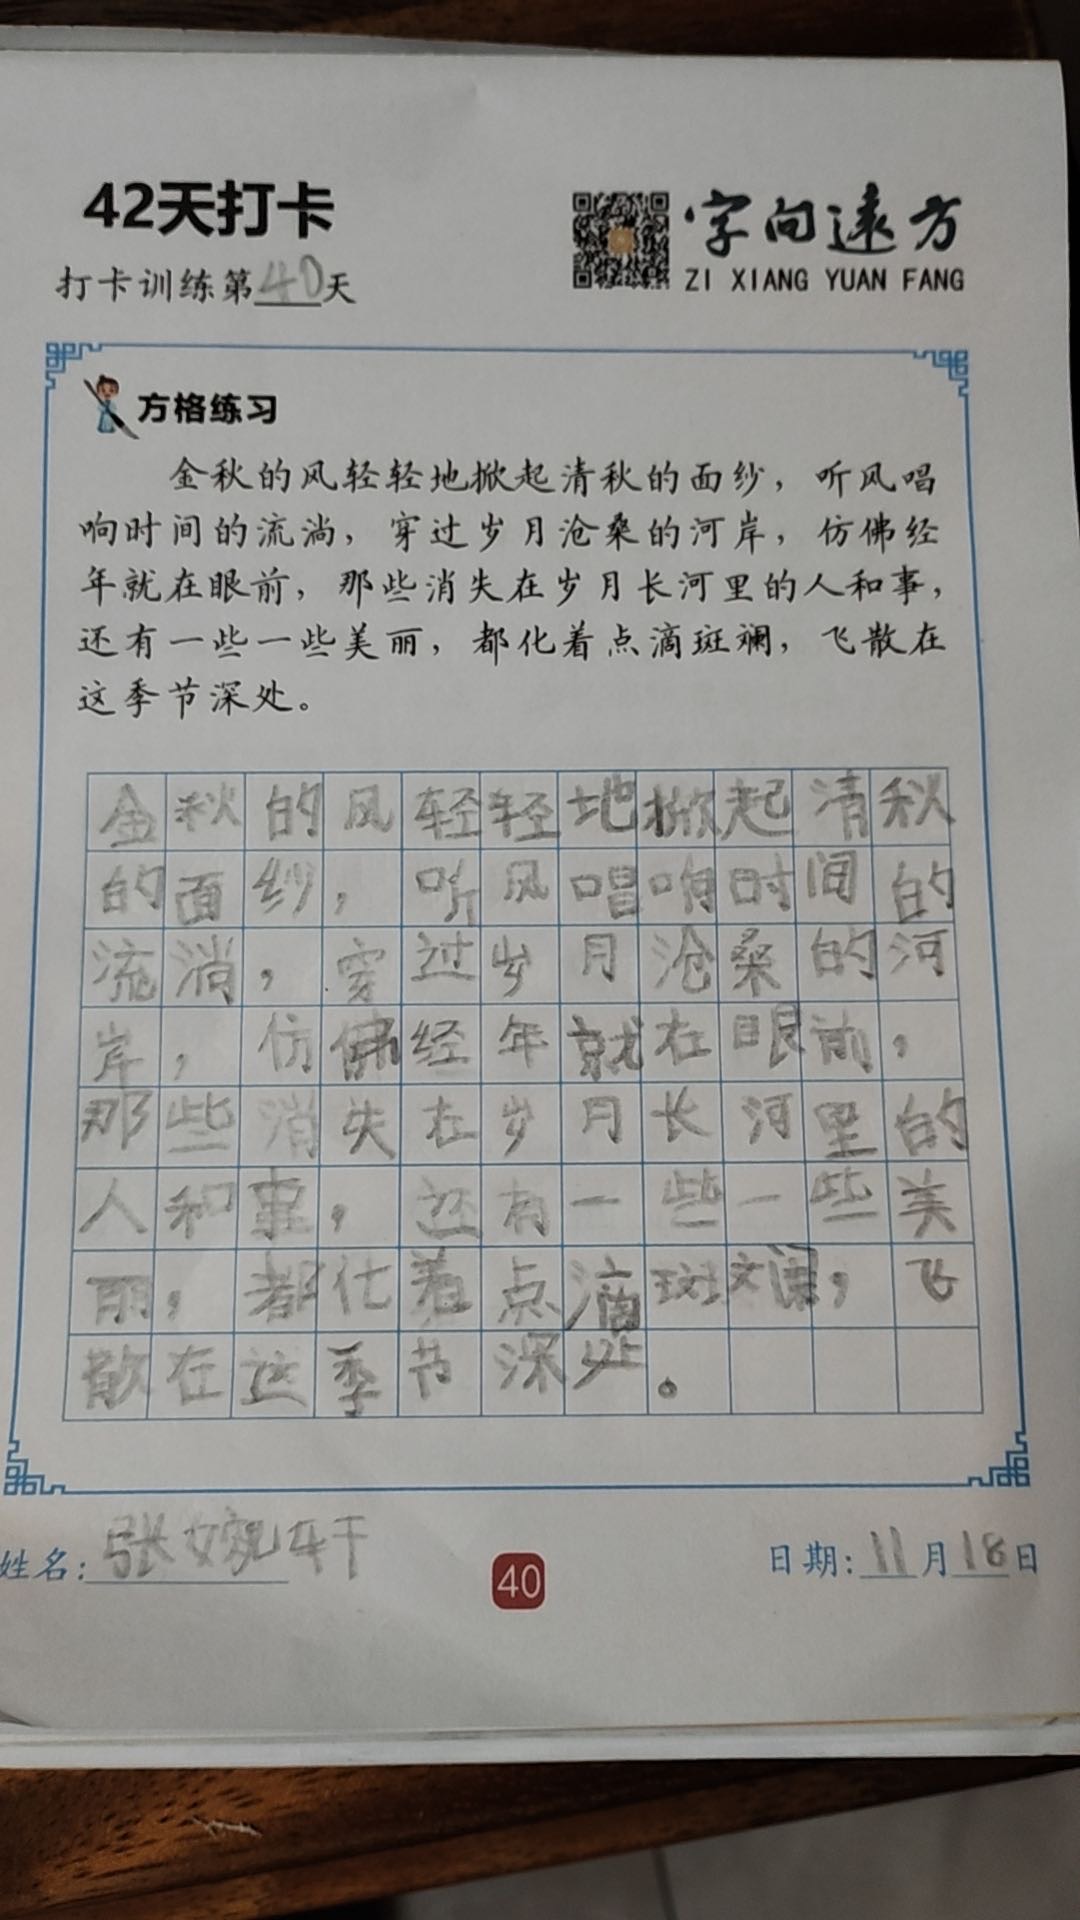 42天打卡
字向远方
ZI XIANG YUAN FANG
打卡训练第40天
方格练习
金秋的风轻轻地掀起清秋的面纱，听风唱
响时间的流淌，穿过岁月沧桑的河岸，仿佛经
年就在眼前，那些消失在岁月长河里的人和事，
还有一些一些美丽，都化着点滴斑斓，飞散在
这季节深处。
金秋的风轻轻地掀起清秋
的面纱，听风唱响时间的
流淌，穿过岁月沧桑的河
岸，仿佛经年就在眼前，
那些消失在岁月长河里的
人和事，还有一些一些美
丽，都化着点滴斑斓，飞
散在这季节深处。
姓名：张婉轩
40
日期：11月18日